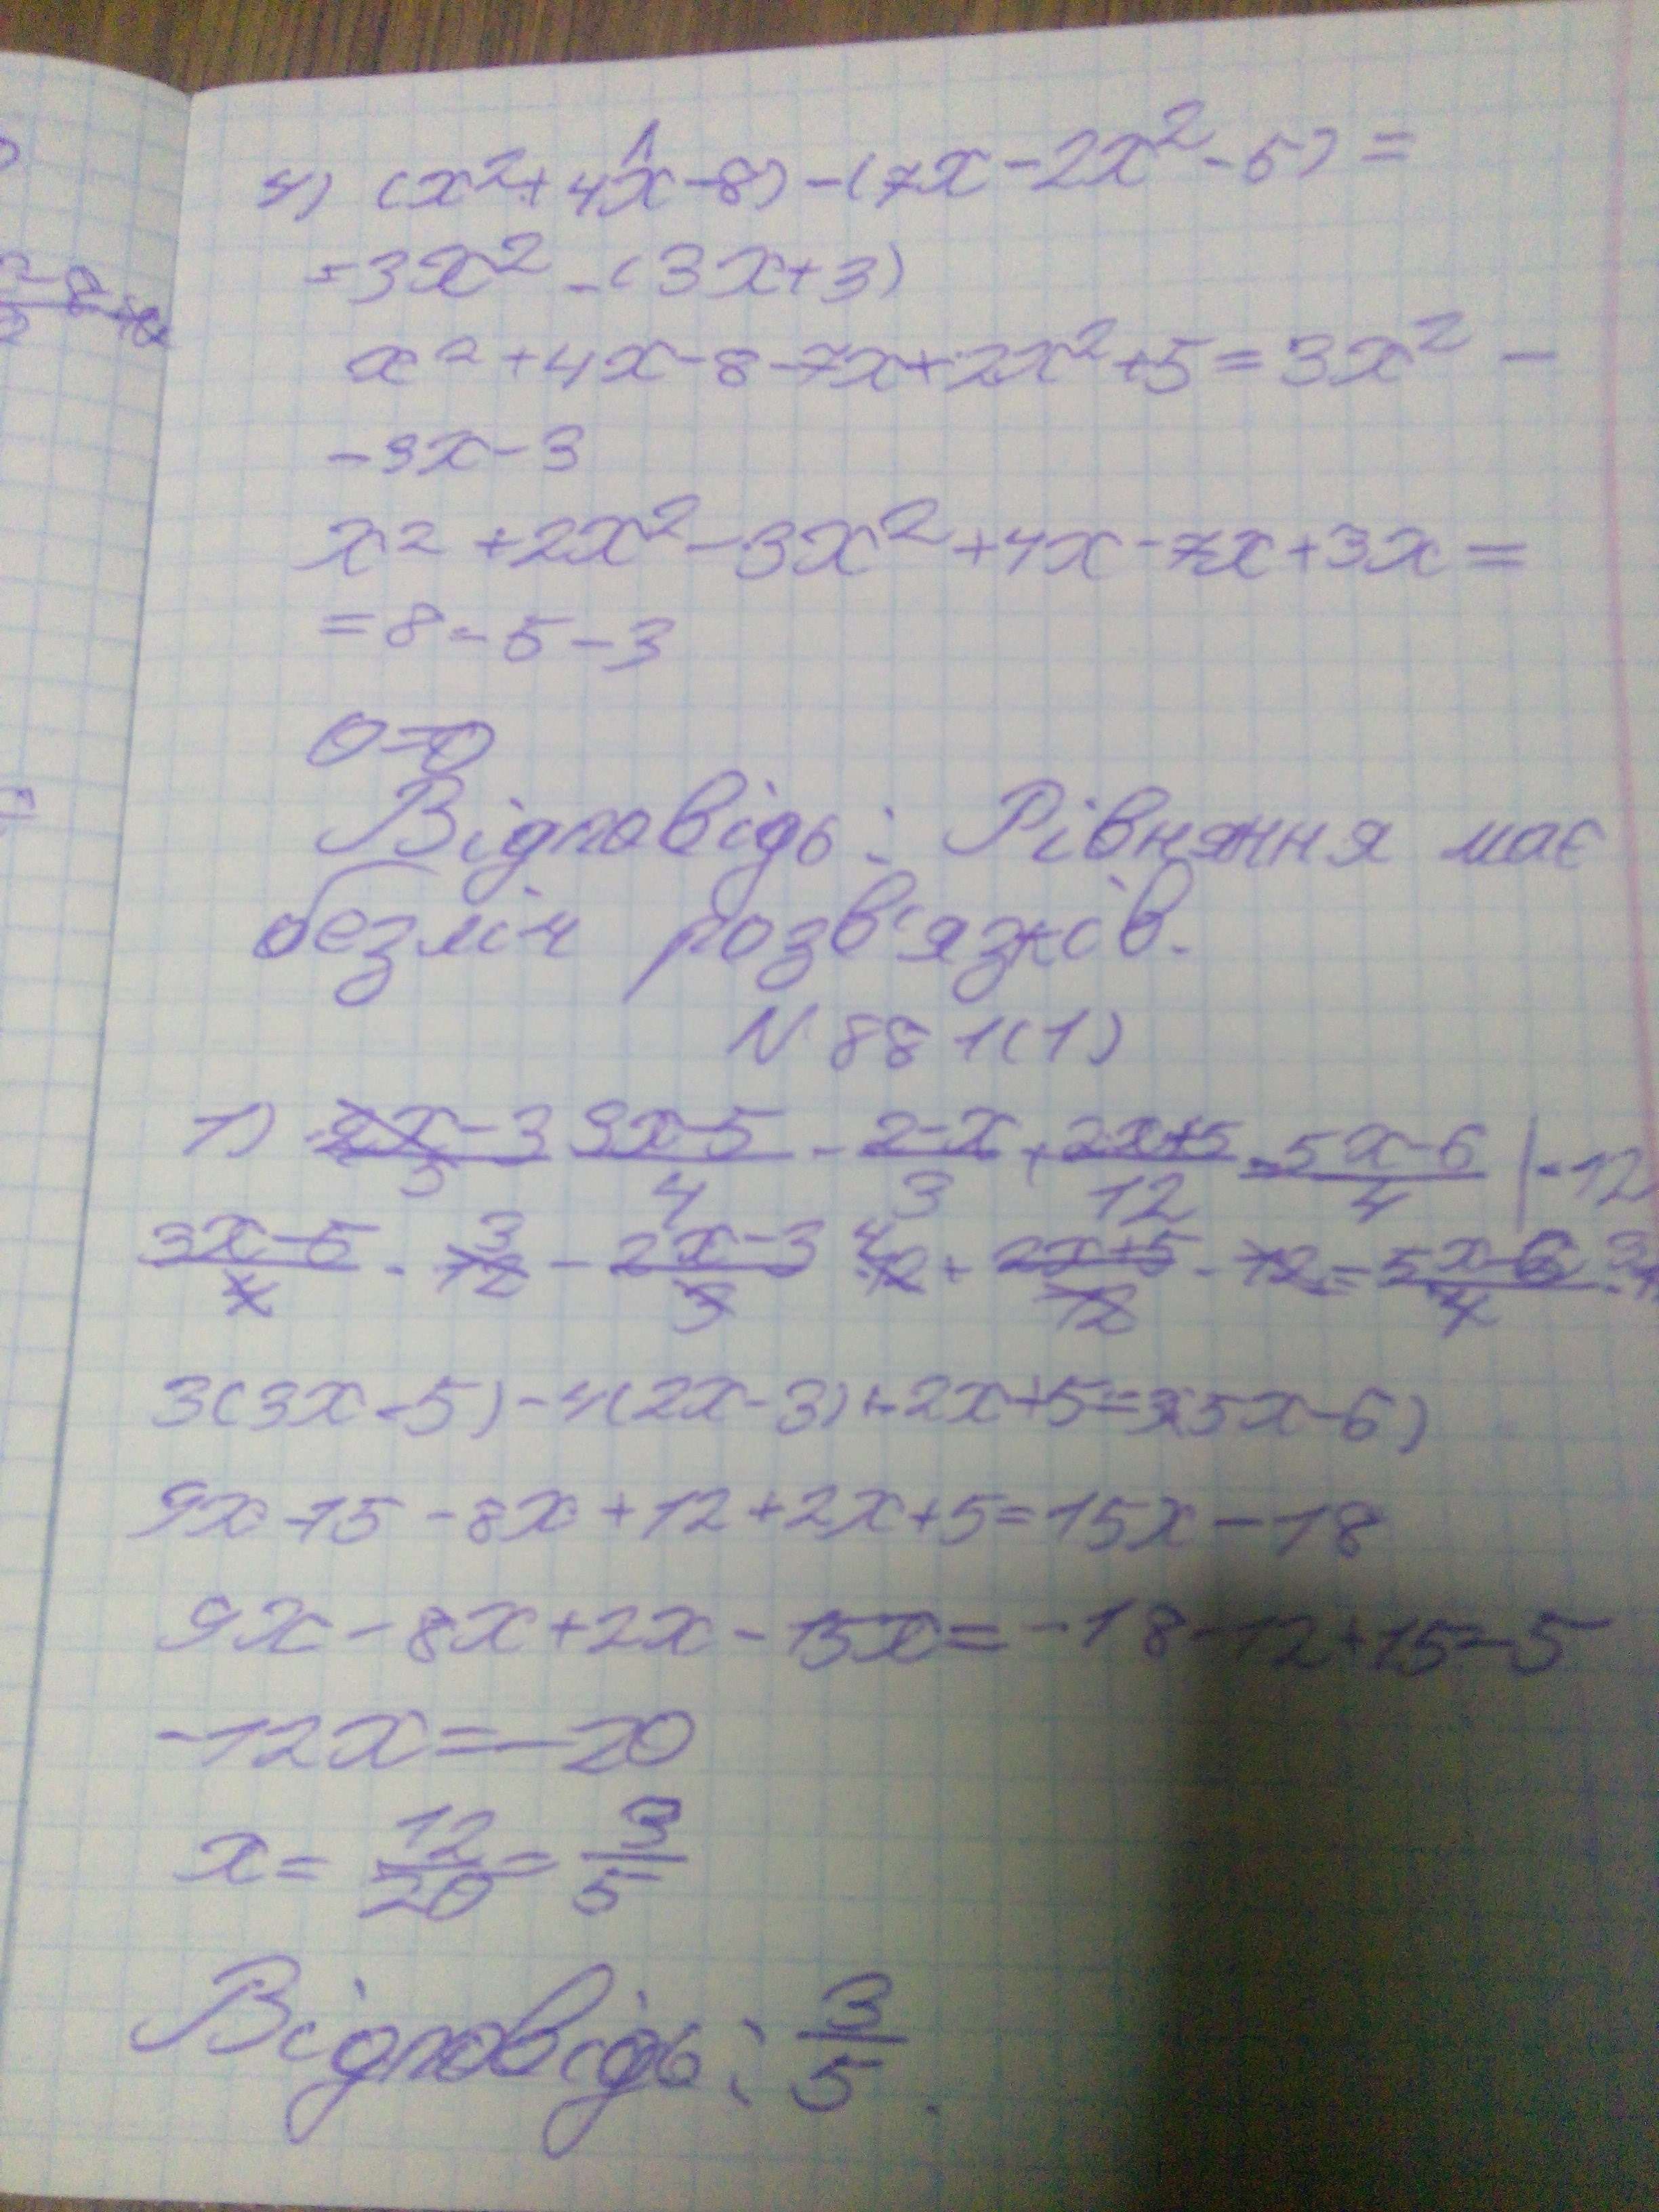 4) (x²+4x-8)-(7x-2x²-5)=
=3x²-(3x+3)
x²+4x-8-7x+2x²+5=3x²-
-3x-3
x²+2x²-3x²+4x-7x+3x=
=8-5-3
0=0
Відповідь: Рівняння має
безліч розв'язків.
N 881(1)
1) 3x-5/4 - 2-x/3 + 2x+5/12 = 5x-6/4 |·12
3x-5/4 · 12 3 - 2x-3/3 · 12 4 + 2x+5/12 · 12 = 5x-6/4 · 3
3(3x-5)-4(2x-3)+2x+5=3(5x-6)
9x-15-8x+12+2x+5=15x-18
9x-8x+2x-15x=-18-12+15-5
-12x=-20
x=12/20=3/5
Відповідь: 3/5.